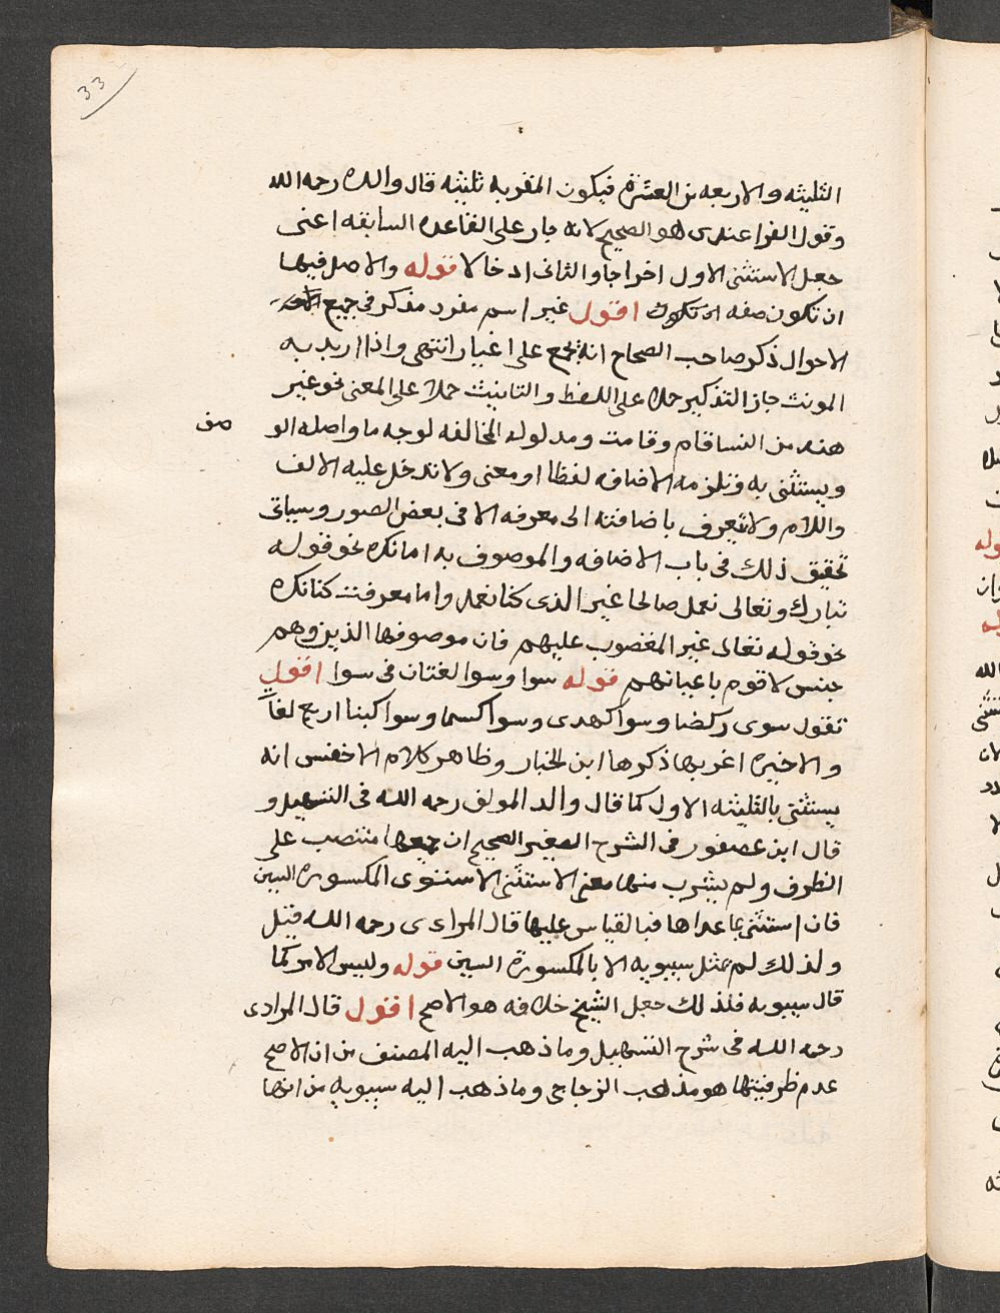 33
الثلثيه والاربعه من العشرة فيكون المقربه ثلثيه قال والده رحمه الله
وقول الفرا عندى هو الصحيح لانه جار على القاعده السابقه اعنى
جعل الاستثنى الاول اخراجا والثانى ادخالا قوله والاصل فيها
ان تكون صفه اقول غير اسم مفرد مذكر فى جميع
الاحوال ذكر صاحب الصحاح انه يجمع على اغيار انتهى واذا اريد به
المونث جاز التذكير حملا على اللفظ والتانيث حملا على المعنى نحو غير
هند من النسا قام وقامت ومدلوله المخالفه لوجه ما واصله الو صف
ويستثنى به وتلزمه الاضافه لفظا او معنى ولا تدخل عليه الالف
واللام ولا يتعرف باضافته الى معرفه الا فى بعض الصور وسياتى
تحقيق ذلك فى باب الاضافه والموصوف به اما نكره نحو قوله
تبارك وتعالى نعمل صالحا غير الذى كنا نعمل واما معرفت كنانكره
نحو قوله تعالى غير المغضوب عليهم فان موصوفها الذين وهم
جنس لا قوم باعيانهم قوله سوا وسوا لغتان فى سوا اقول
تقول سوى ركضا وسوا كهدى وسوا كسما وسوا كبنا اربع لغات
والاخيره اغربها ذكرها ابن الخباز وظاهر كلام الاخفش انه
يستثنى بالثلثيه الاول كما قال والد المولف رحمه الله فى التسهيل و
قال ابن عصفور فى الشرح الصغير الصحيح ان جميعها منتصب على
الظرف ولم يشرب منها معنى الاستثنى الا سوى المكسورة السين
فان استثنى بما عداها فبالقياس عليها قال المرادى رحمه الله قيل
ولذلك لم يمثل سيبويه الا بالمكسورة السين قوله وليس الامر كما
قال سيبويه فلذلك جعل الشيخ خلافه هو الاصح اقول قال المرادى
رحمه الله فى شرح التسهيل وما ذهب اليه المصنف من ان الاصح
عدم ظرفيتها هو مذهب الزجاجى وما ذهب اليه سيبويه من انها